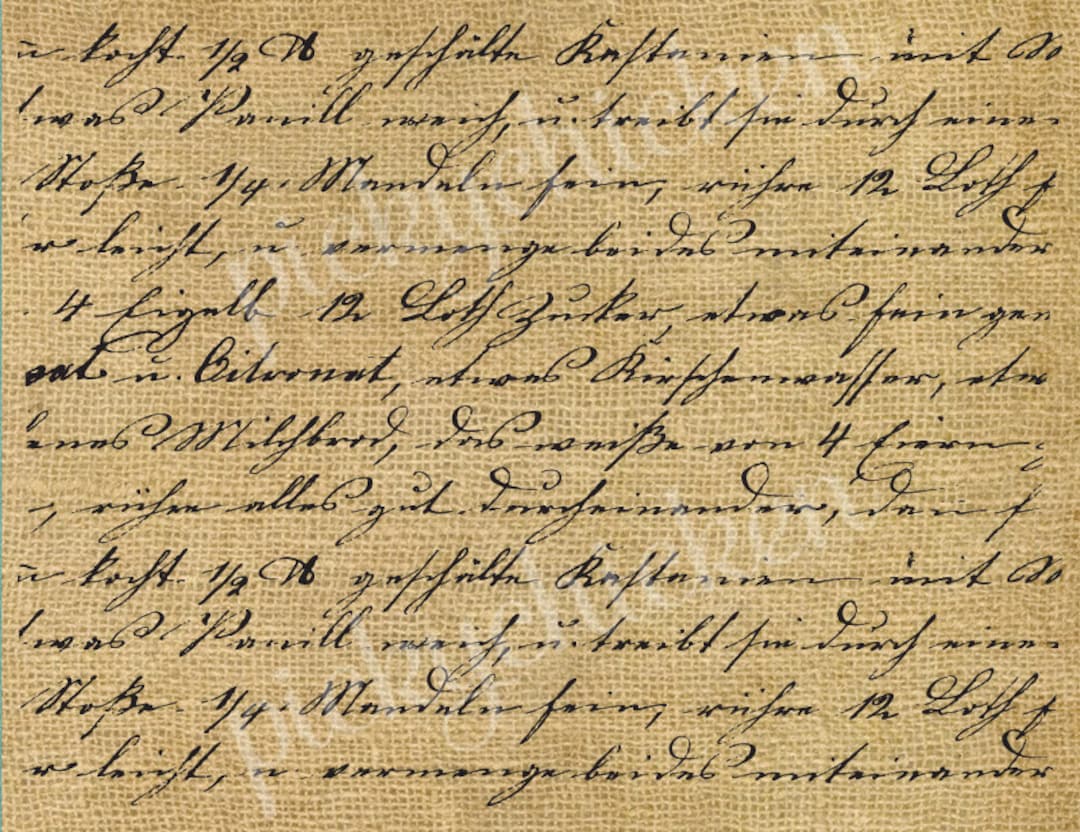 kocht 1/2 ℔ geschälte Kastanien mit
was Vanill weich, u. treibt sie durch eine
Stoße 1/4 Mandeln fein, rühre 12 Loth
r leicht, u vermenge beides miteinander
4 Eigelb 12 Loth Zucker, etwas fein
at u. Citronat, etwas Kirschenwasser, etw
enes Milchbrod, das weiße von 4 Eiern
rühre alles gut durcheinander, dan f
kocht 1/2 ℔ geschälte Kastanien mit
was Vanill weich, u. treibt sie durch eine
Stoße 1/4 Mandeln fein, rühre 12 Loth
r leicht, u vermenge beides miteinander
pickychicken
pickychicken